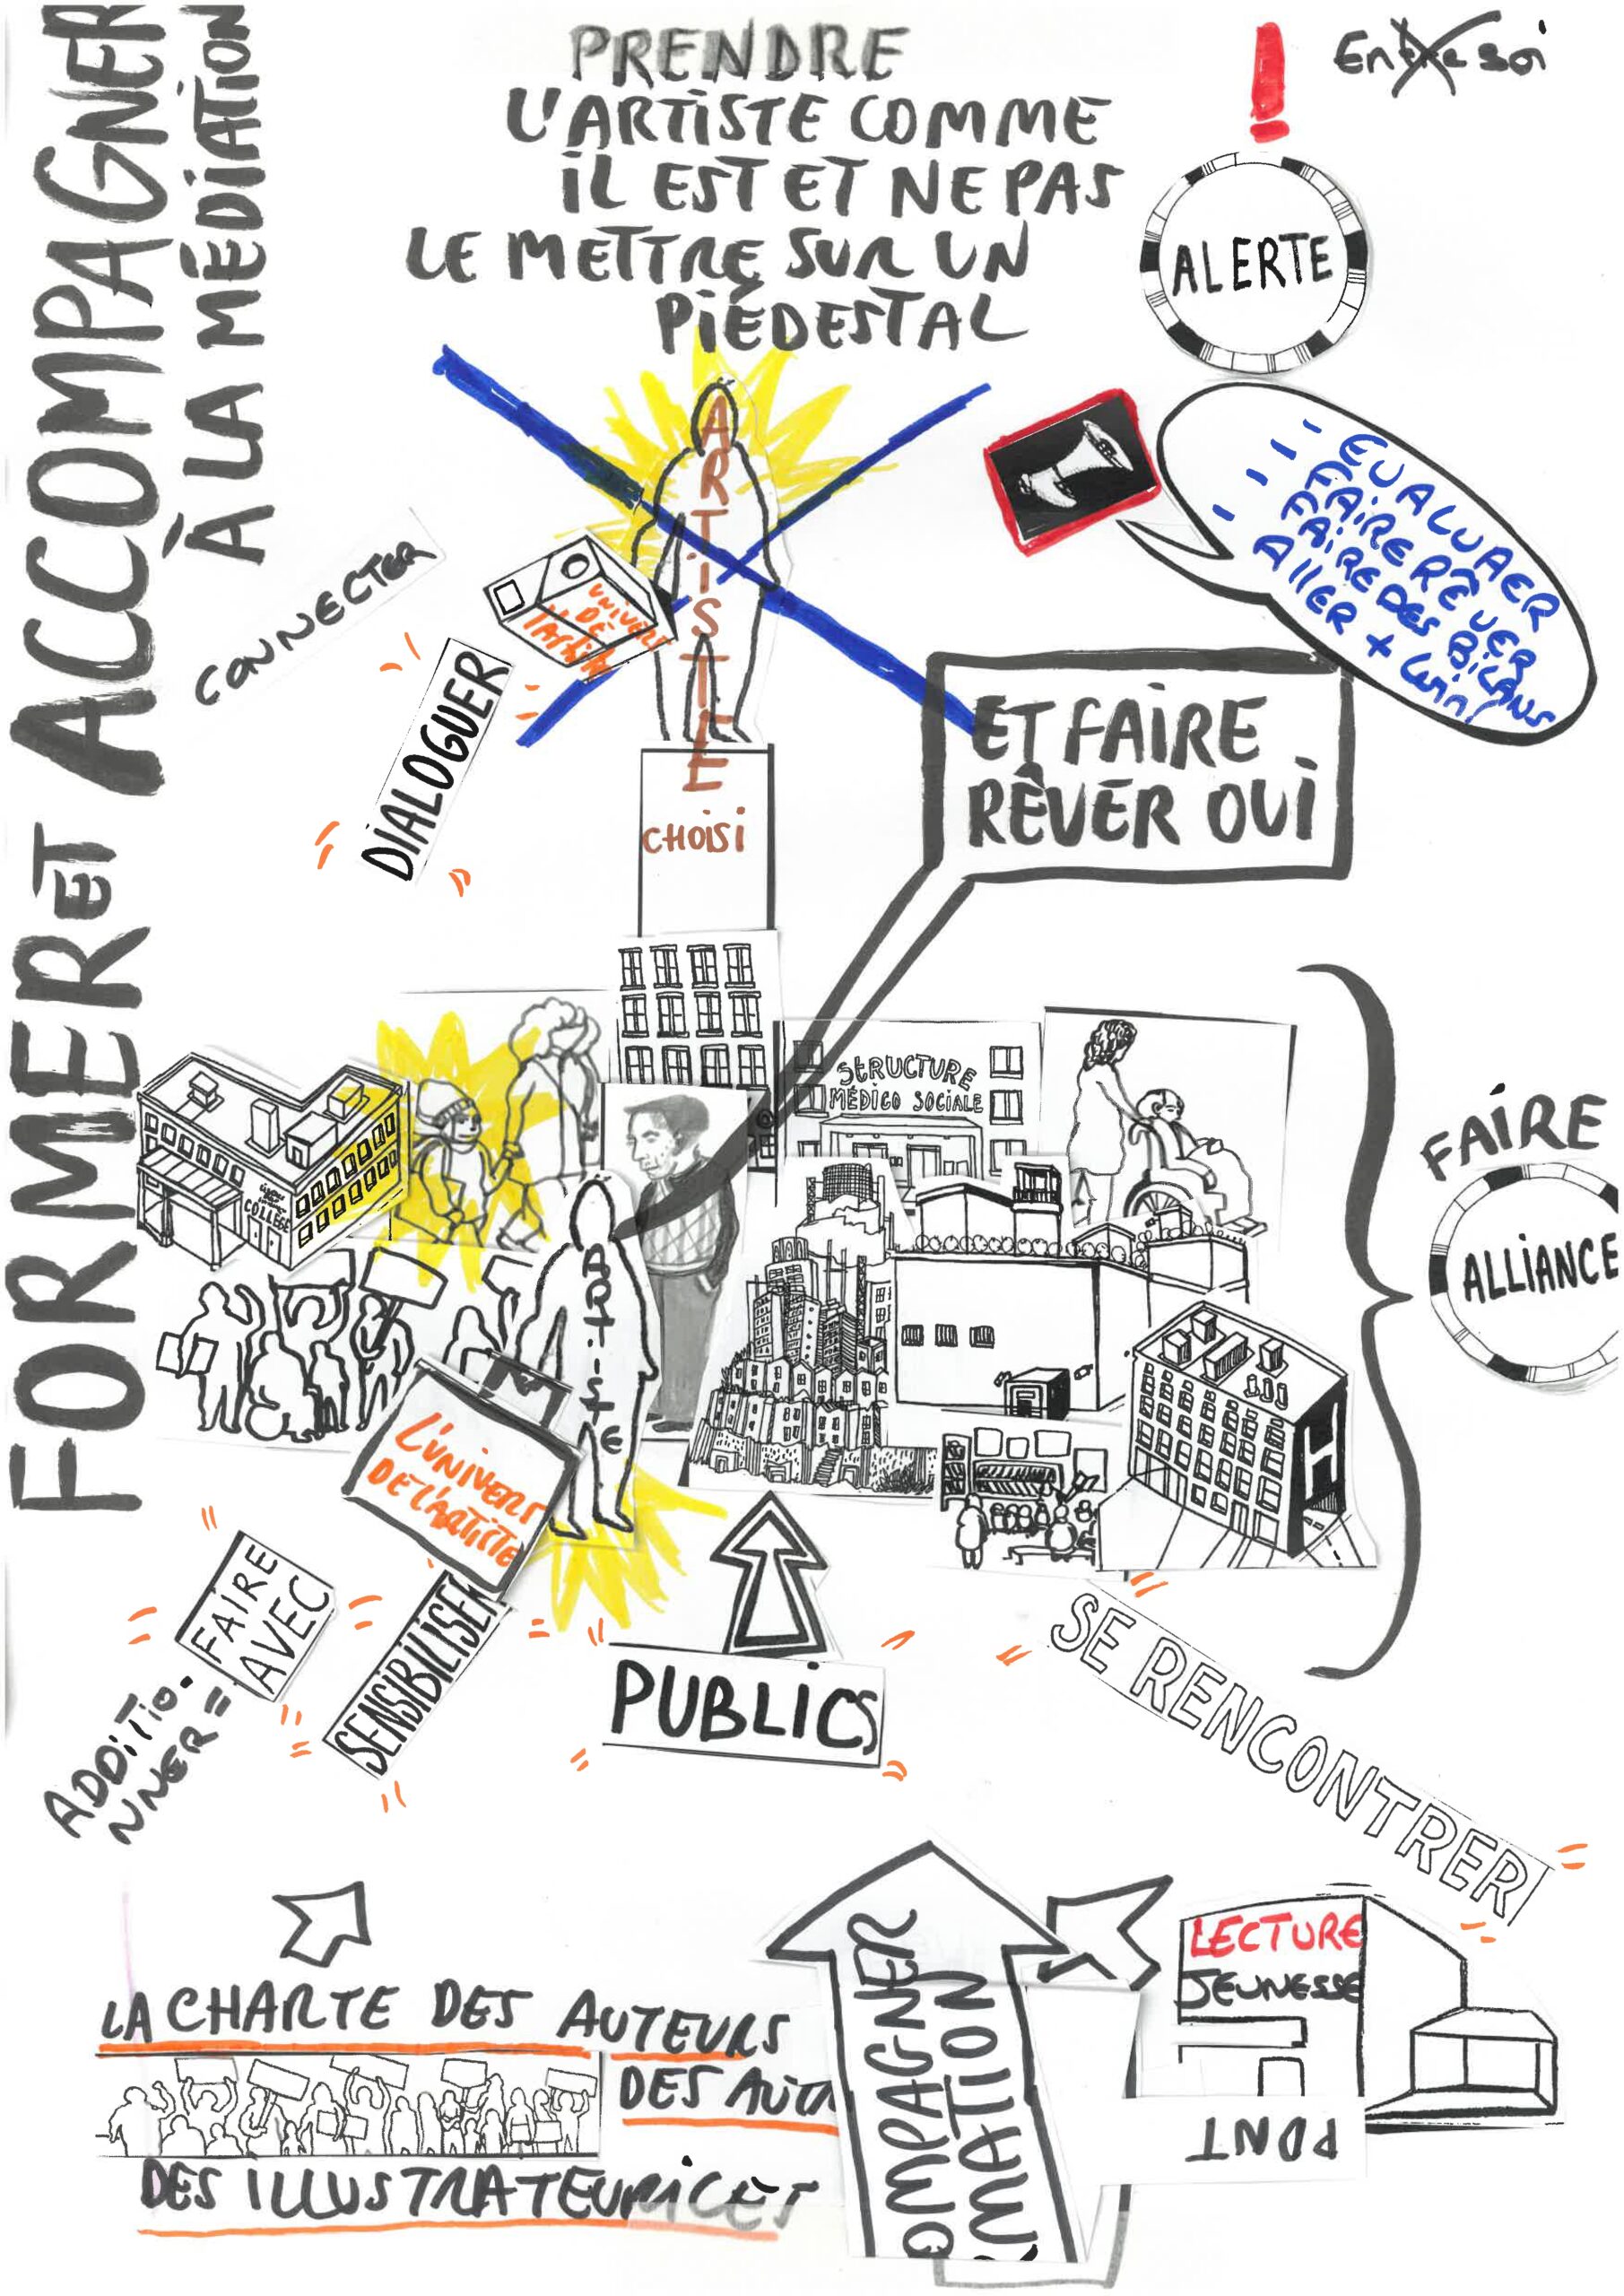 FORMER ET ACCOMPAGNER
À LA MÉDIATION
PRENDRE
L'ARTISTE COMME
IL EST ET NE PAS
LE METTRE SUR UN
PIÉDESTAL
!
Entre soi
ALERTE
EVALUER
FAIRE RÊVER
FAIRE DES BILANS
Aller + loin/
CONNECTER
DIALOGUER
UNIVERS
DE
l'artiste
ARTISTE
CHOISI
ET FAIRE
RÊVER OUI
STRUCTURE
MÉDICO SOCIALE
COLLÈGE
FAIRE
ALLIANCE
ARTISTE
L'UNIVERS
DE L'ARTISTE
FAIRE
AVEC
ADDITIO-
NNER =
SENSIBILISER
PUBLICS
SE RENCONTRER
LA CHARTE DES AUTEURS
DES AUTR
DES ILLUSTRATEURICES
OMPAGNER
RMATION
LECTURE
JEUNESSE
PONT